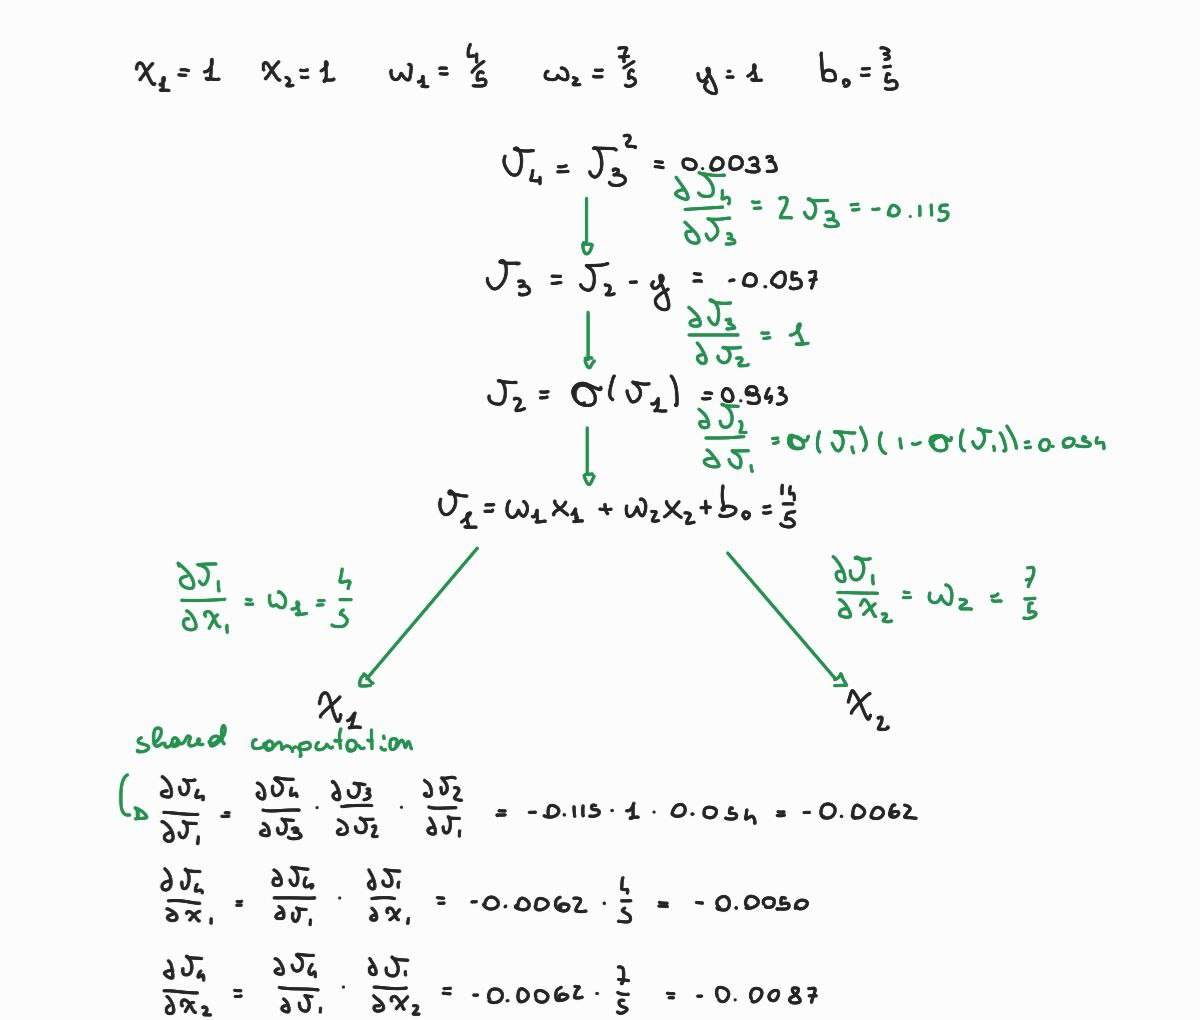 x₁ = 1 x₂ = 1 w₁ = 4/5 w₂ = 7/5 y = 1 b₀ = 3/5
J₄ = J₃² = 0.0033
∂J₄/∂J₃ = 2 J₃ = -0.115
J₃ = J₂ - y = -0.057
∂J₃/∂J₂ = 1
J₂ = σ(J₁) = 0.943
∂J₂/∂J₁ = σ(J₁)(1 - σ(J₁)) = 0.054
J₁ = w₁x₁ + w₂x₂ + b₀ = 14/5
∂J₁/∂x₁ = w₁ = 4/5 ∂J₁/∂x₂ = w₂ = 7/5
x₁ x₂
shared computation
∂J₄/∂J₁ = ∂J₄/∂J₃ · ∂J₃/∂J₂ · ∂J₂/∂J₁ = -0.115 · 1 · 0.054 = -0.0062
∂J₄/∂x₁ = ∂J₄/∂J₁ · ∂J₁/∂x₁ = -0.0062 · 4/5 = -0.0050
∂J₄/∂x₂ = ∂J₄/∂J₁ · ∂J₁/∂x₂ = -0.0062 · 7/5 = -0.0087